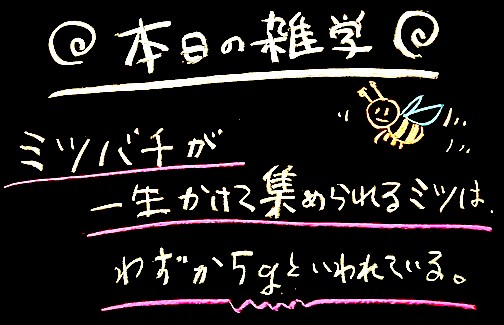 本日の雑学
ミツバチが
一生かけて集められるミツは、
わずか5gといわれている。